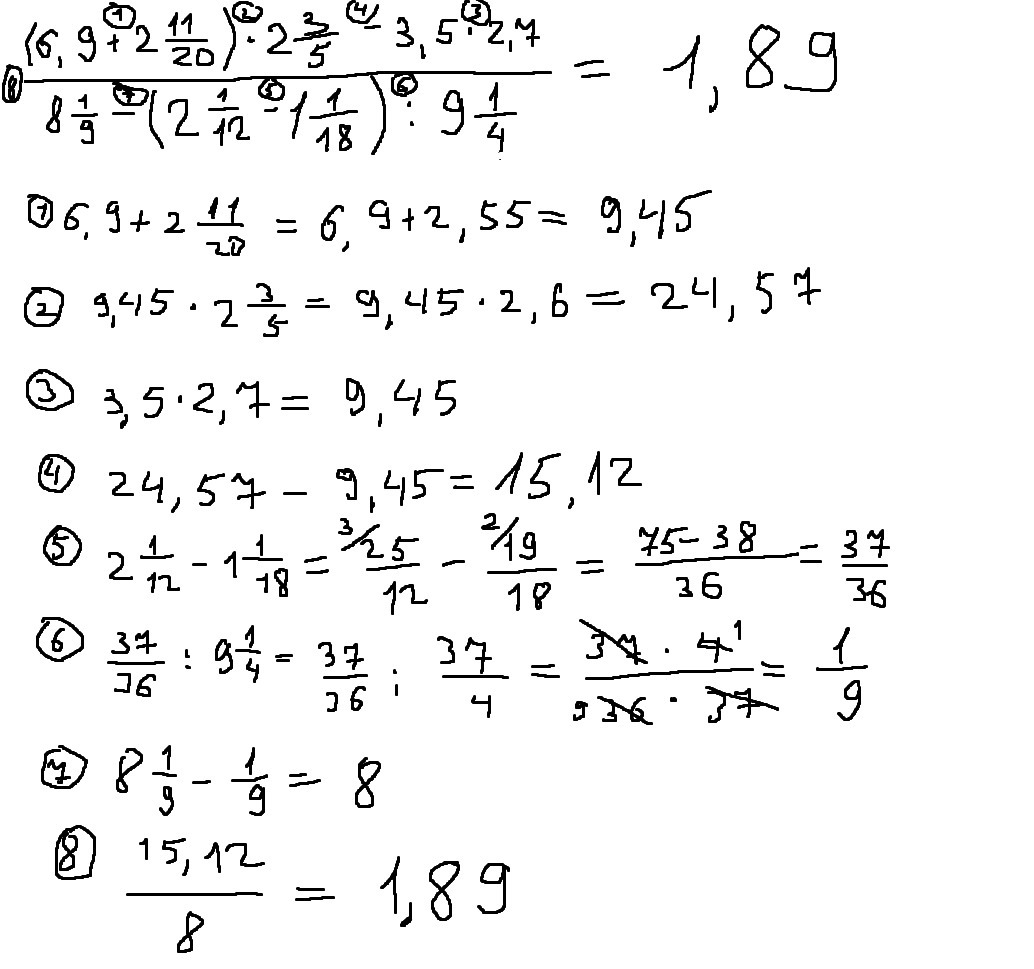 (6,9 +① 2 11/20) ·② 2 3/5 -④ 3,5 ·③ 2,7
⑧ ÷ = 1,89
8 1/9 -⑦ (2 1/12 -⑤ 1 1/18) :⑥ 9 1/4
① 6,9 + 2 11/20 = 6,9 + 2,55 = 9,45
② 9,45 · 2 3/5 = 9,45 · 2,6 = 24,57
③ 3,5 · 2,7 = 9,45
④ 24,57 - 9,45 = 15,12
⑤ 2 1/12 - 1 1/18 = 3/ 25/12 - 2/ 19/18 = (75-38)/36 = 37/36
⑥ 37/36 : 9 1/4 = 37/36 : 37/4 = (37 · 4 1)/(9 36 · 37) = 1/9
⑦ 8 1/9 - 1/9 = 8
⑧ 15,12/8 = 1,89